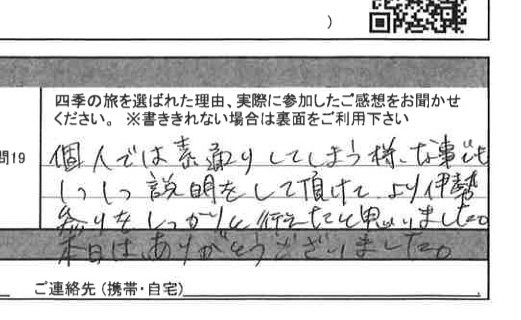 )
四季の旅を選ばれた理由、実際に参加したご感想をお聞かせ
ください。 ※書ききれない場合は裏面をご利用下さい
問19
個人では素通りしてしまう様な事でも
しっかり説明をして頂けて、より伊勢
参りをしっかりと行えたと思いました。
本日はありがとうございました。
ご連絡先 (携帯・自宅)